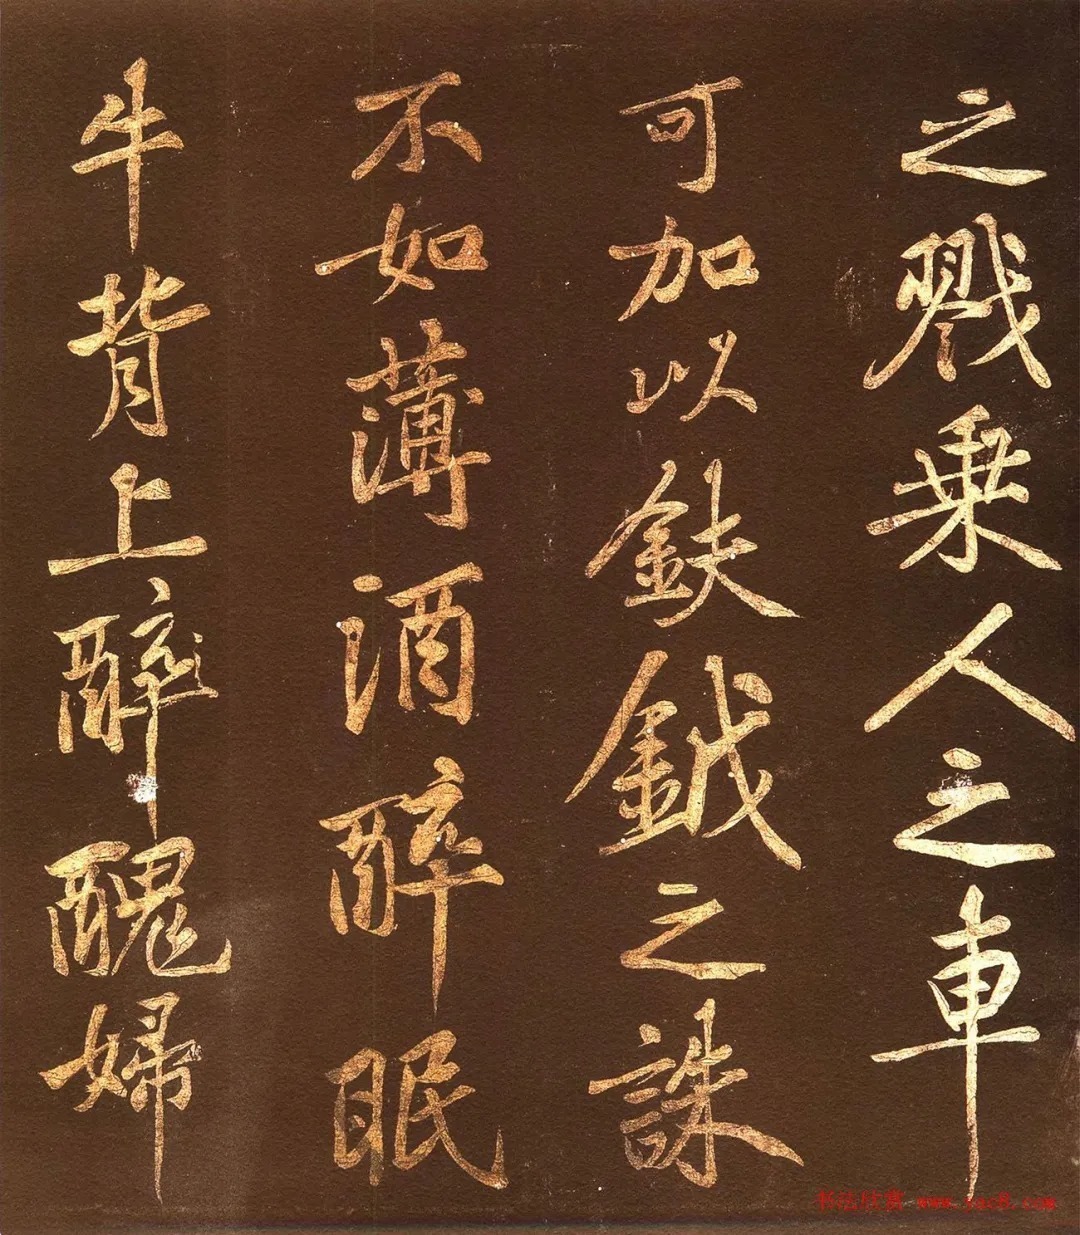 之戮乘人之車
可加以鈇鉞之誅
不如薄酒醉眠
牛背上醉醜婦
书法欣赏 www.yac8.com